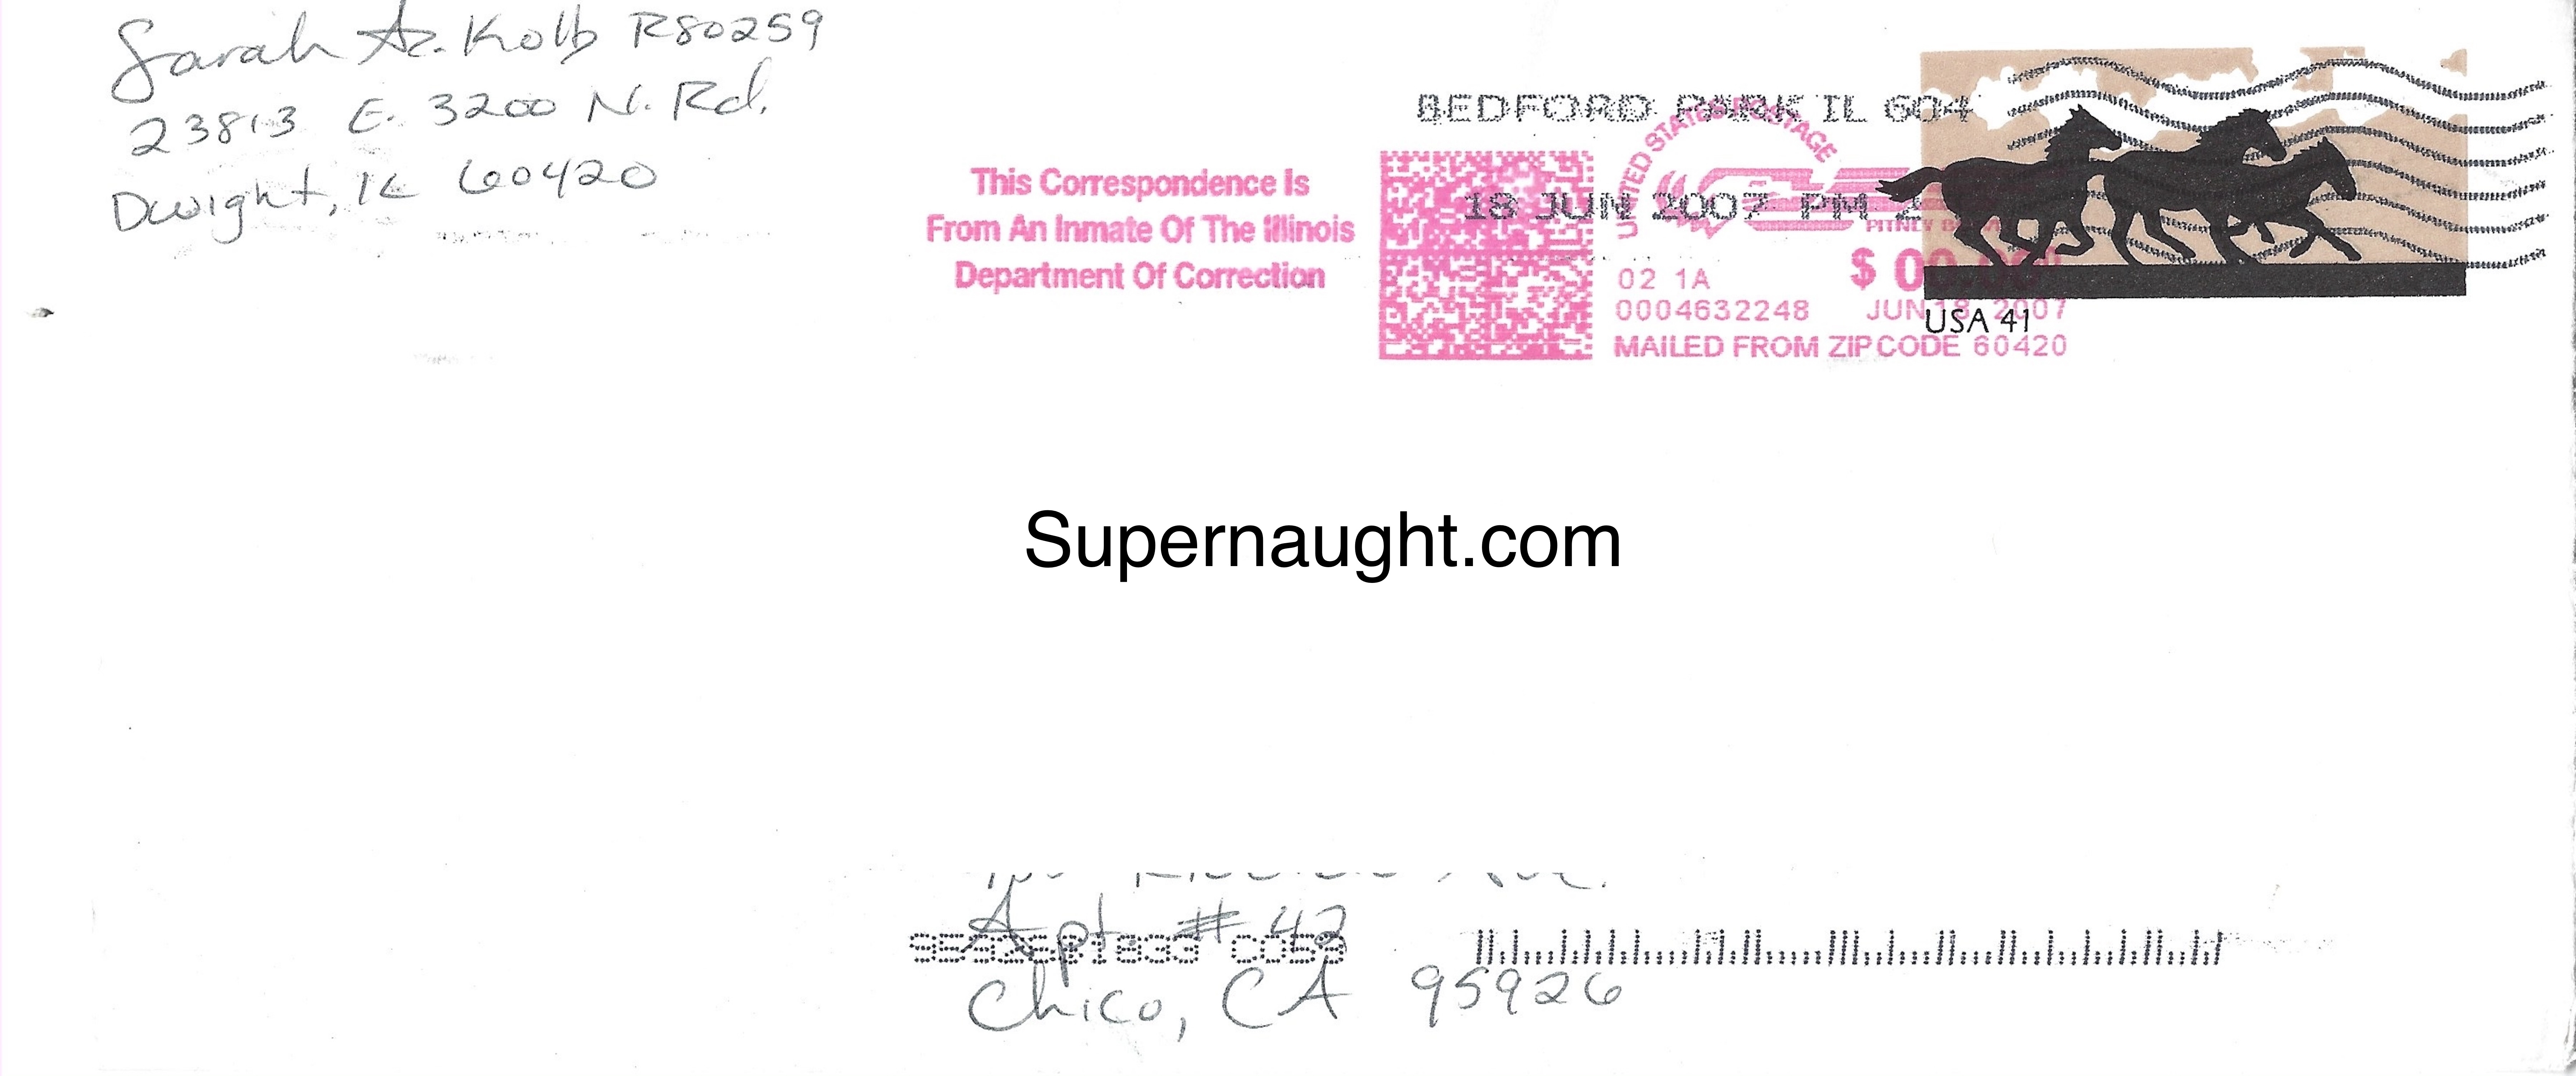 Sarah A. Kolb R80259
23813 E. 3200 N. Rd.
Dwight, IL 60420
This Correspondence Is
From An Inmate Of The Illinois
Department Of Correction
BEDFORD PARK IL 604
18 JUN 2007 PM
UNITED STATES POSTAGE
PITNEY
02 1A
$ 00
0004632248
JUN 18 2007
MAILED FROM ZIP CODE 60420
USA 41
Supernaught.com
Apt. # 42
Chico, CA 95926